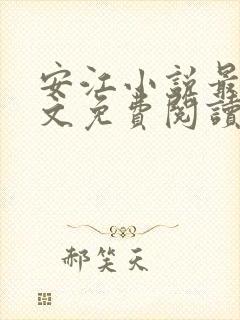 安江小说最
文免費閱讀
郝笑天